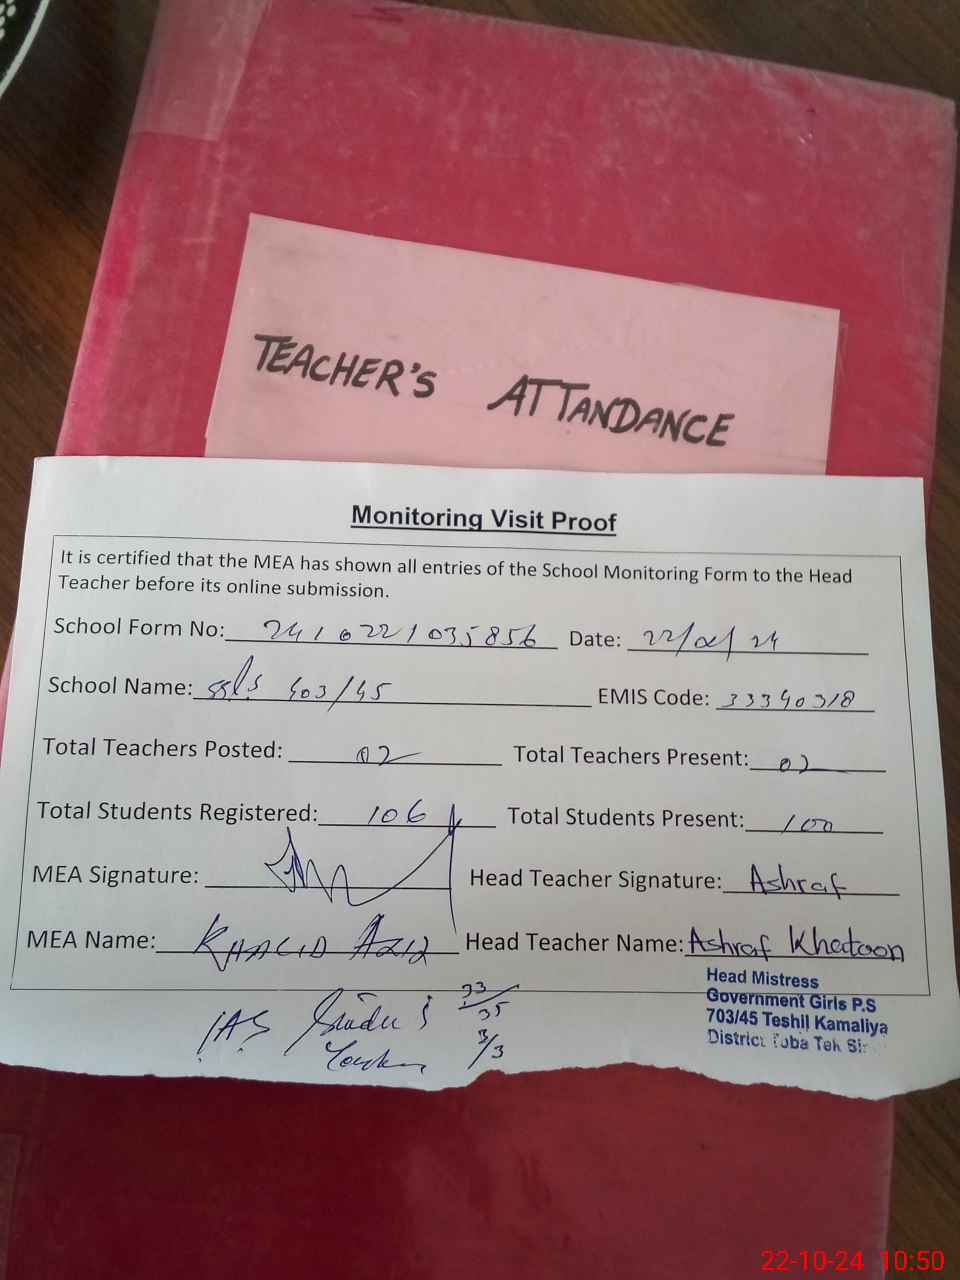 TEACHER'S ATTANDANCE
Monitoring Visit Proof
It is certified that the MEA has shown all entries of the School Monitoring Form to the Head
Teacher before its online submission.
School Form No: 2410221035856 Date: 22/10/24
School Name: 403/45 EMIS Code: 33340318
Total Teachers Posted: 02 Total Teachers Present: 02
Total Students Registered: 106 Total Students Present: 100
MEA Signature: Head Teacher Signature: Ashraf
MEA Name: KHALID AZIZ Head Teacher Name: Ashraf Khatoon
Head Mistress
Government Girls P.S
703/45 Teshil Kamaliya
District Toba Tek
33/35
3/3
22-10-24 10:50